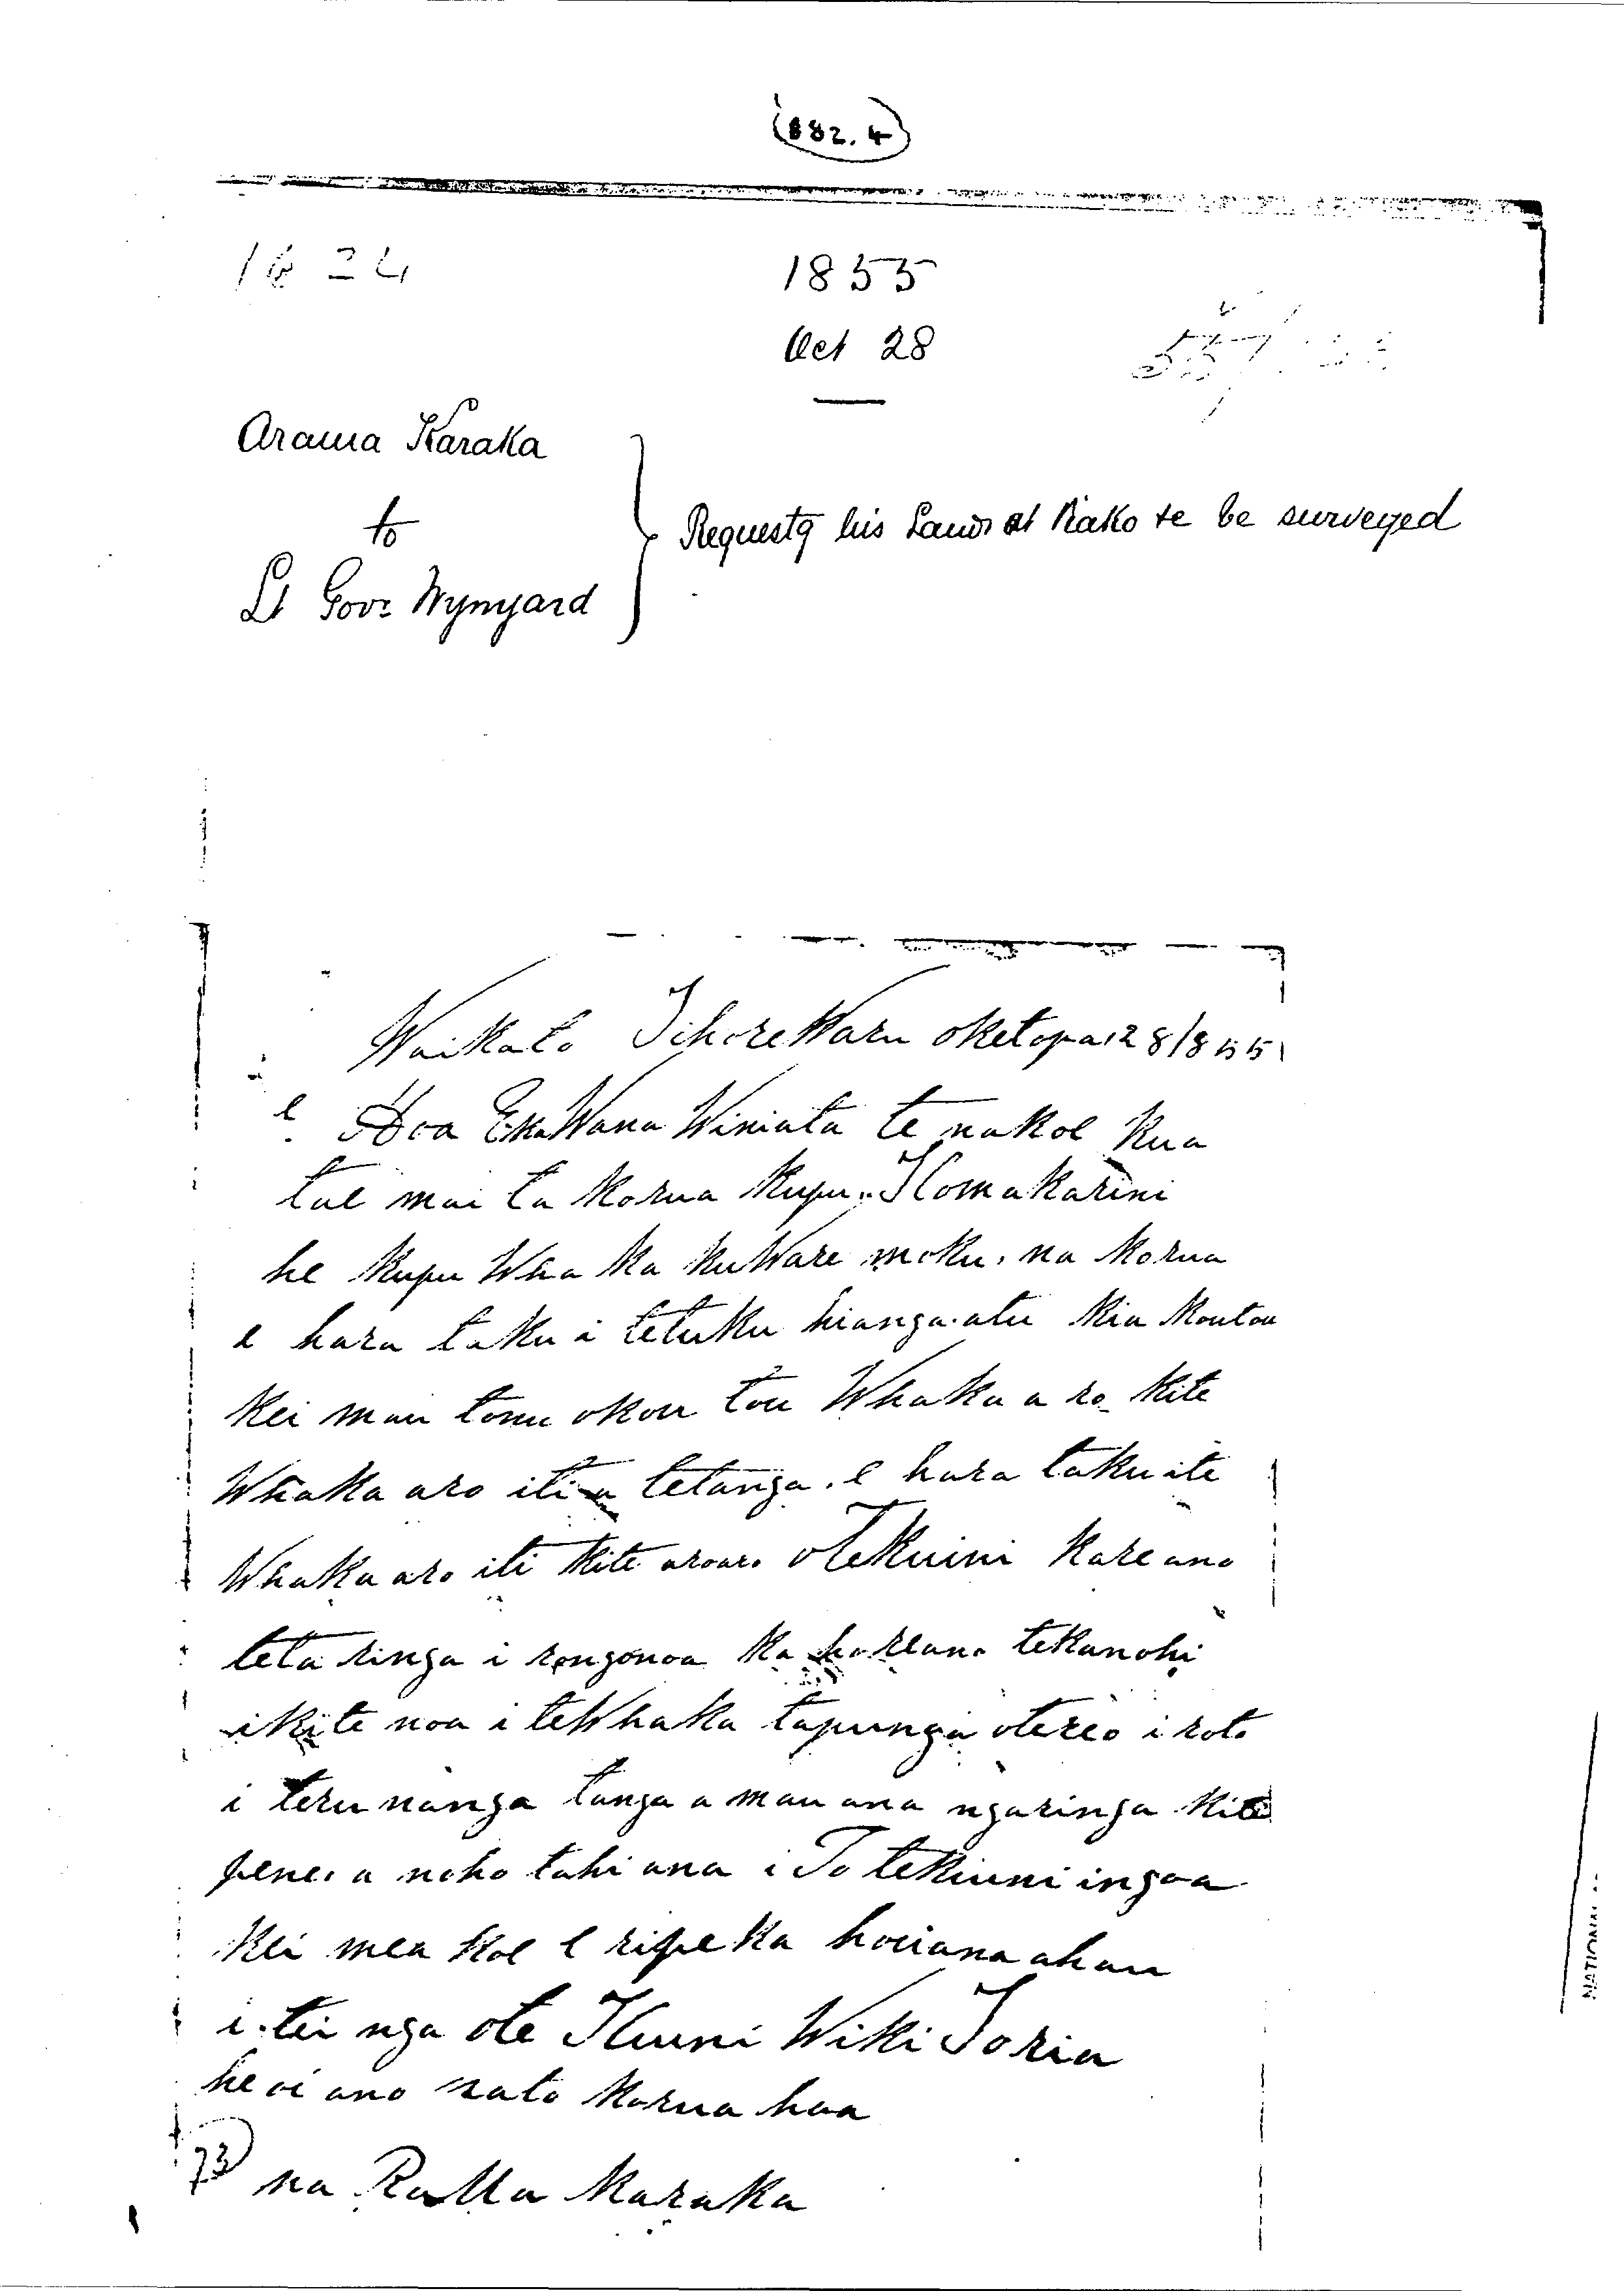 (882.4)
1824
1855
Oct 28
Arama Karaka
to
Lt Govr Wynyard
Requestg his Lands at Piako to be surveyed
Waikato Ihorewaru oketopa 28/855
e Hoa EkaWana Winiata te nakoe Kua
tae mai ta Korua Kupu. Ko makarini
he Kupu Wha Ka KuWare moku, na Korua
e hara taku i tetuku hianga atu Kia Koutou
Kei mau tonu okou tou Whaka a ro Kite
Whaka aro iti a tetanga. e hara taku ite
Whaka aro iti Kite aroaro oteKuini Kare ano
teta ringa i rongonoa Ka hoReano teKanohi
iKite noa i teWhaKa tapunga otereo i roto
i teru nanga tanga a mau ana ngaringa Kite
pene. a noho tahi ana i To teKuini ingoa
Kei mea Koe e ripeKa hoiana ahau
i tei nga ote Kuini WiKi Toria
he oi ano nato Korua hoa
na Karaka
73
NATIONAL